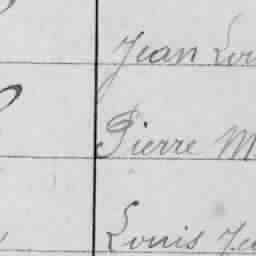 Jean Lou
Pierre M
Louis Jea